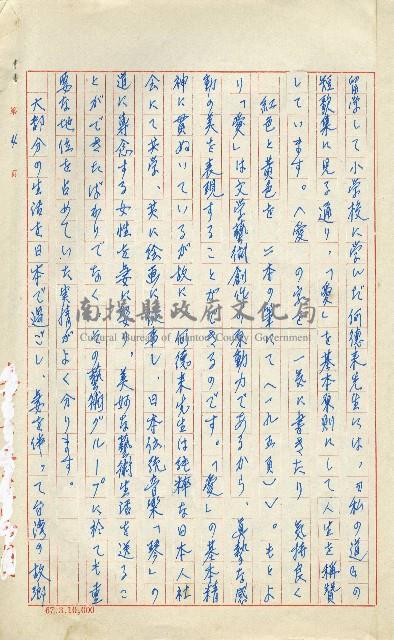 留学して小学校に学んだ何德来先生には、『私の道』の
短歌集に見る通り、「愛」を基本原則にして人生を稱賛
しています。へ愛の字を一気に書きたり 気持良く
紅色と黄色を 二本の筆で へ一九五頁)ゝ。もとよ
り「愛」は文学藝術創作の原動力であるから、真摯な感
動の美を表現することが出来るのです。「愛」の基本精
神に貫ぬいているが故に、何德来先生は純粹な日本人社
会にて共学、共に絵画に し、日本伝統音樂「琴」の
道に專念する女性を妻に 、美妙な藝術生活を送るこ
とができたばかりでなく、その藝術グループに於ても重
要な地位を占めていた実情がよく分ります。
大部分の生活を日本で過ごし、妻を伴って台湾の故鄉
第 4 頁
南投縣政府文化局
Cultural Bureau of Nantou County Government
67.3.10,000